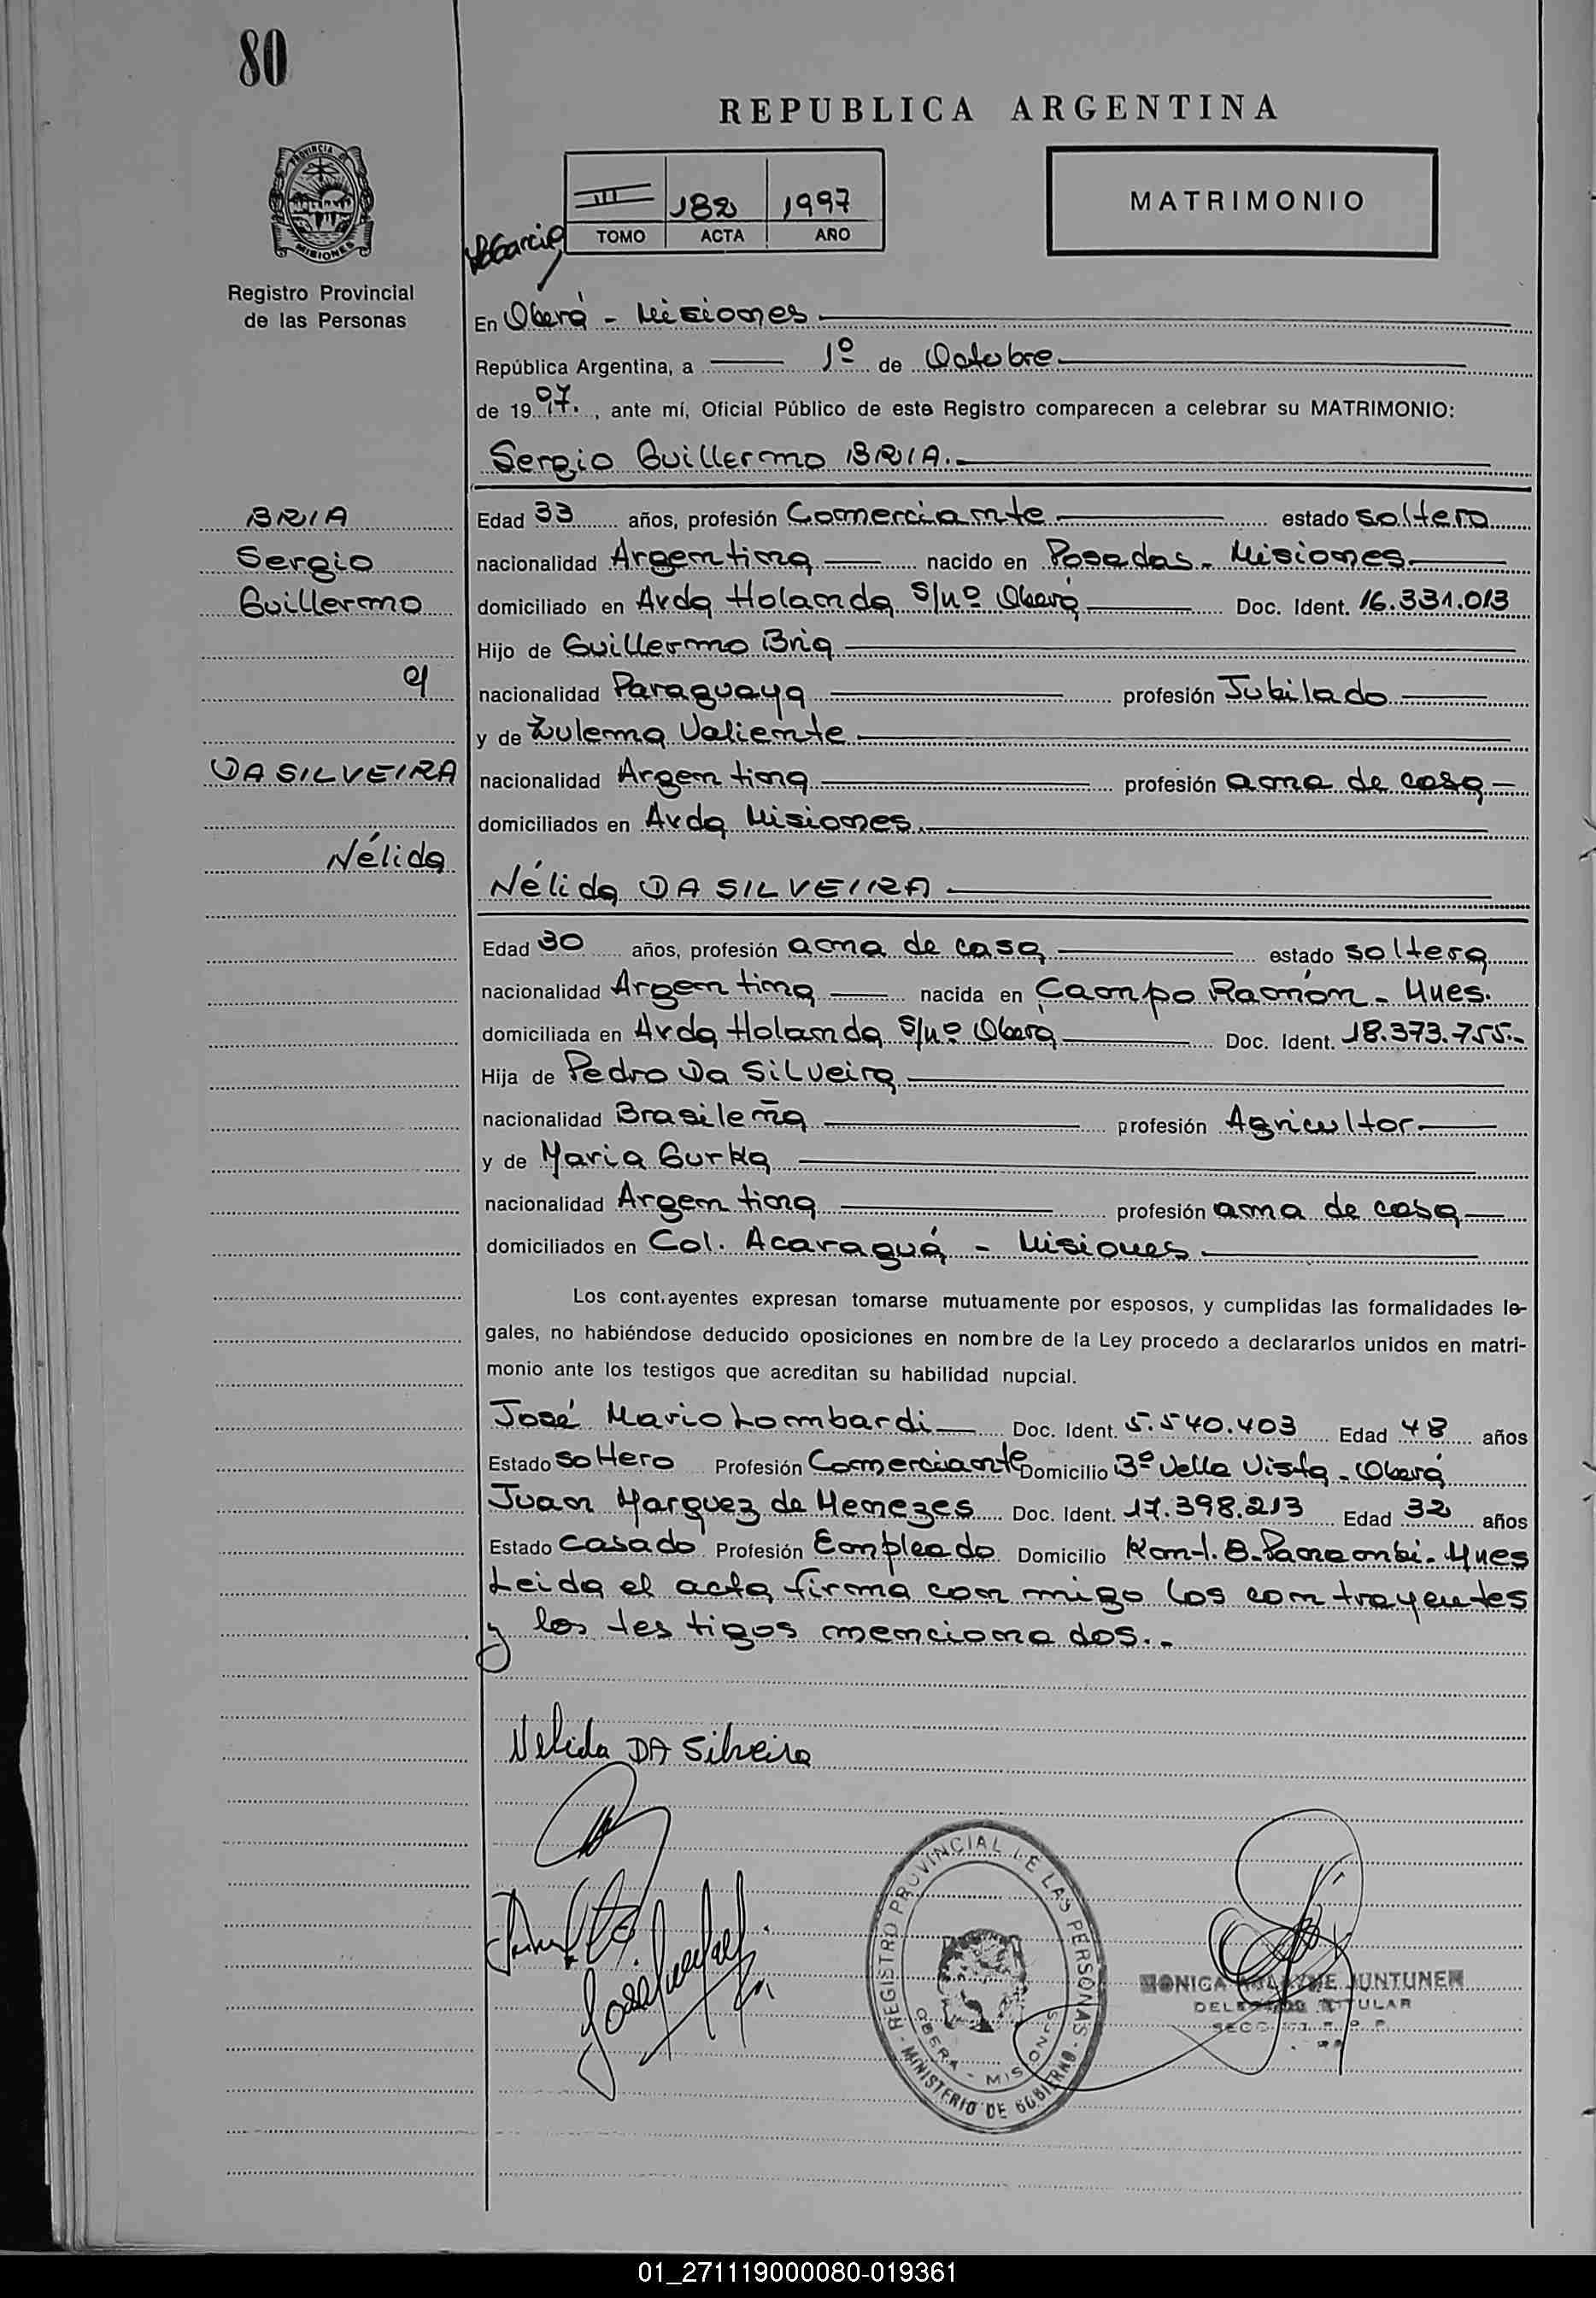 80
REPUBLICA ARGENTINA
PROVINCIA DE
MISIONES
III 182 1997
TOMO ACTA AÑO
MATRIMONIO
Registro Provincial
de las Personas
En Oberá - Misiones
República Argentina, a 1º de Octubre
de 1997., ante mí, Oficial Público de este Registro comparecen a celebrar su MATRIMONIO:
Sergio Guillermo BRIA.
BRIA
Sergio
Guillermo
DA SILVEIRA
Nélida
Edad 33 años, profesión Comerciante estado soltero
nacionalidad Argentina nacido en Posadas - Misiones
domiciliado en Avda Holanda S/nº Oberá Doc. Ident. 16.331.013
Hijo de Guillermo Bria
nacionalidad Paraguaya profesión Jubilado
y de Zulema Valiente
nacionalidad Argentina profesión ama de casa
domiciliados en Avda Misiones.
Nélida DA SILVEIRA
Edad 30 años, profesión ama de casa estado soltera
nacionalidad Argentina nacida en Campo Ramón - Mnes.
domiciliada en Avda Holanda S/nº Oberá Doc. Ident. 18.373.755.-
Hija de Pedro Da Silveira
nacionalidad Brasileña profesión Agricultor
y de Maria Gurka
nacionalidad Argentina profesión ama de casa
domiciliados en Col. Acaraguá - Misiones
Los cont.ayentes expresan tomarse mutuamente por esposos, y cumplidas las formalidades le-
gales, no habiéndose deducido oposiciones en nombre de la Ley procedo a declararlos unidos en matri-
monio ante los testigos que acreditan su habilidad nupcial.
José Mario Lombardi Doc. Ident. 5.540.403 Edad 48 años
Estado soltero Profesión Comerciante Domicilio Bº Vella Vista - Oberá
Juan Marquez de Menezes Doc. Ident. 17.398.213 Edad 32 años
Estado Casado Profesión Empleado Domicilio Panambi - Mnes
Leida el acta firma con migo los contrayentes
y los testigos mencionados.-
Nelida DA Silveira
REGISTRO PROVINCIAL DE LAS PERSONAS
OBERA - MISIONES
MINISTERIO DE GOBIERNO
MONICA JUNTUNEN
TITULAR
01_271119000080-019361